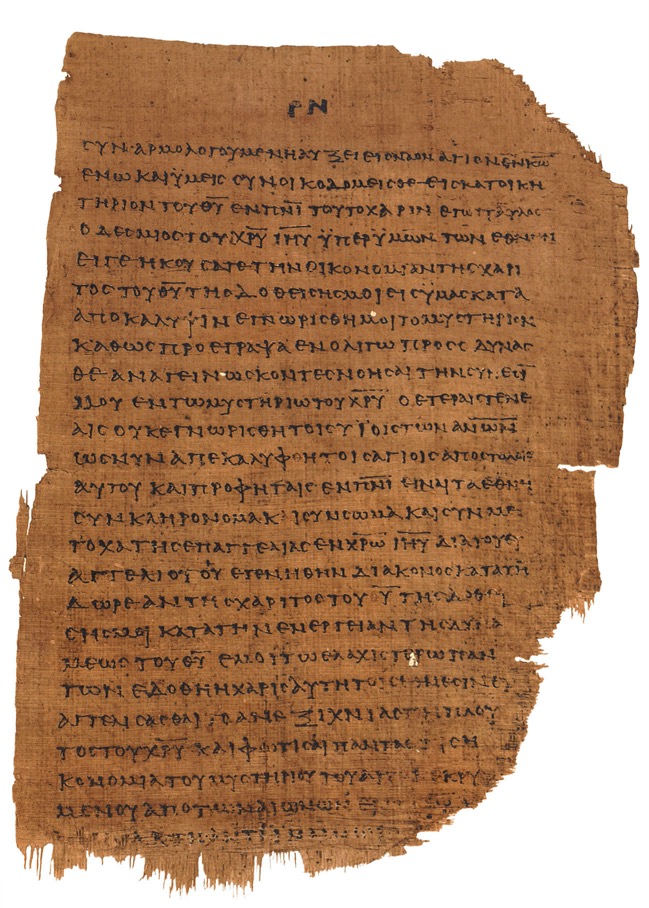 ΡΝ
ϹΥΝΑΡΜΟΛΟΓΟΥΜΕΝΗ ΑΥΞΕΙ ΕΙϹ ΝΑΟΝ ΑΓΙΟΝ ΕΝ Κ̅Ω̅
ΕΝ Ω ΚΑΙ ΥΜΕΙϹ ϹΥΝΟΙΚΟΔΟΜΕΙϹΘΕ ΕΙϹ ΚΑΤΟΙΚΗ
ΤΗΡΙΟΝ ΤΟΥ Θ̅Υ̅ ΕΝ Π̅Ν̅Ι̅ ΤΟΥΤΟ ΧΑΡΙΝ ΕΓΩ ΠΑΥΛΟϹ
Ο ΔΕϹΜΙΟϹ ΤΟΥ Χ̅Ρ̅Υ̅ Ι̅Η̅Υ̅ ΫΠΕΡ ΥΜΩΝ ΤΩΝ ΕΘΝΩΝ
ΕΙ ΓΕ ΗΚΟΥϹΑΤΕ ΤΗΝ ΟΙΚΟΝΟΜΙΑΝ ΤΗϹ ΧΑΡΙ
ΤΟϹ ΤΟΥ Θ̅Υ̅ ΤΗϹ ΔΟΘΕΙϹΗϹ ΜΟΙ ΕΙϹ ΥΜΑϹ ΚΑΤΑ
ΑΠΟΚΑΛΥΨΙΝ ΕΓΝΩΡΙϹΘΗ ΜΟΙ ΤΟ ΜΥϹΤΗΡΙΟΝ
ΚΑΘΩϹ ΠΡΟΕΓΡΑΨΑ ΕΝ ΟΛΙΓΩ ΠΡΟϹ ΔΥΝΑϹ
ΘΕ ΑΝΑΓΕΙΝΩϹΚΟΝΤΕϹ ΝΟΗϹΑΙ ΤΗΝ ϹΥΝΕϹΙ̅
ΜΟΥ ΕΝ ΤΩ ΜΥϹΤΗΡΙΩ ΤΟΥ Χ̅Ρ̅Υ̅ Ο ΕΤΕΡΑΙϹ ΓΕΝΕ
ΑΙϹ ΟΥΚ ΕΓΝΩΡΙϹΘΗ ΤΟΙϹ ΥΪΟΙϹ ΤΩΝ Α̅Ν̅Ω̅Ν̅
ΩϹ ΝΥΝ ΑΠΕΚΑΛΥΦΘΗ ΤΟΙϹ ΑΓΙΟΙϹ ΑΠΟϹΤΟΛΟΙϹ
ΑΥΤΟΥ ΚΑΙ ΠΡΟΦΗΤΑΙϹ ΕΝ Π̅Ν̅Ι̅ ΕΙΝΑΙ ΤΑ ΕΘΝΗ
ϹΥΝΚΛΗΡΟΝΟΜΑ ΚΑΙ ϹΥΝϹΩΜΑ ΚΑΙ ϹΥΝΜΕ
ΤΟΧΑ ΤΗϹ ΕΠΑΓΓΕΛΙΑϹ ΕΝ Χ̅Ρ̅Ω̅ Ι̅Η̅Υ̅ ΔΙΑ ΤΟΥ ΕΥ
ΑΓΓΕΛΙΟΥ ΟΥ ΕΓΕΝΗΘΗΝ ΔΙΑΚΟΝΟϹ ΚΑΤΑ ΤΗ
ΔΩΡΕΑΝ ΤΗϹ ΧΑΡΙΤΟϹ ΤΟΥ Θ̅Υ̅ ΤΗϹ ΔΟΘΕΙ
ϹΗϹ ΜΟΙ ΚΑΤΑ ΤΗΝ ΕΝΕΡΓΕΙΑΝ ΤΗϹ ΔΥΝΑ
ΜΕΩϹ ΤΟΥ Θ̅Υ̅ ΕΜΟΙ ΤΩ ΕΛΑΧΙϹΤΟΤΕΡΩ ΠΑΝ
ΤΩΝ ΕΔΟΘΗ Η ΧΑΡΙϹ ΑΥΤΗ ΤΟΙϹ ΕΘΝΕϹΙΝ ΕΥ
ΑΓΓΕΛΙϹΑϹΘΑΙ ΤΟ ΑΝΕΞΙΧΝΙΑϹΤΟΝ ΠΛΟΥ
ΤΟϹ ΤΟΥ Χ̅Ρ̅Υ̅ ΚΑΙ ΦΩΤΙϹΑΙ ΠΑΝΤΑϹ ΤΙϹ Η
ΚΟΝΟΜΙΑ ΤΟΥ ΜΥϹΤΗΡΙΟΥ ΤΟΥ ΑΠΟΚΕΚΡΥ
ΜΕΝΟΥ ΑΠΟ ΤΩΝ ΑΙΩΝΩΝ